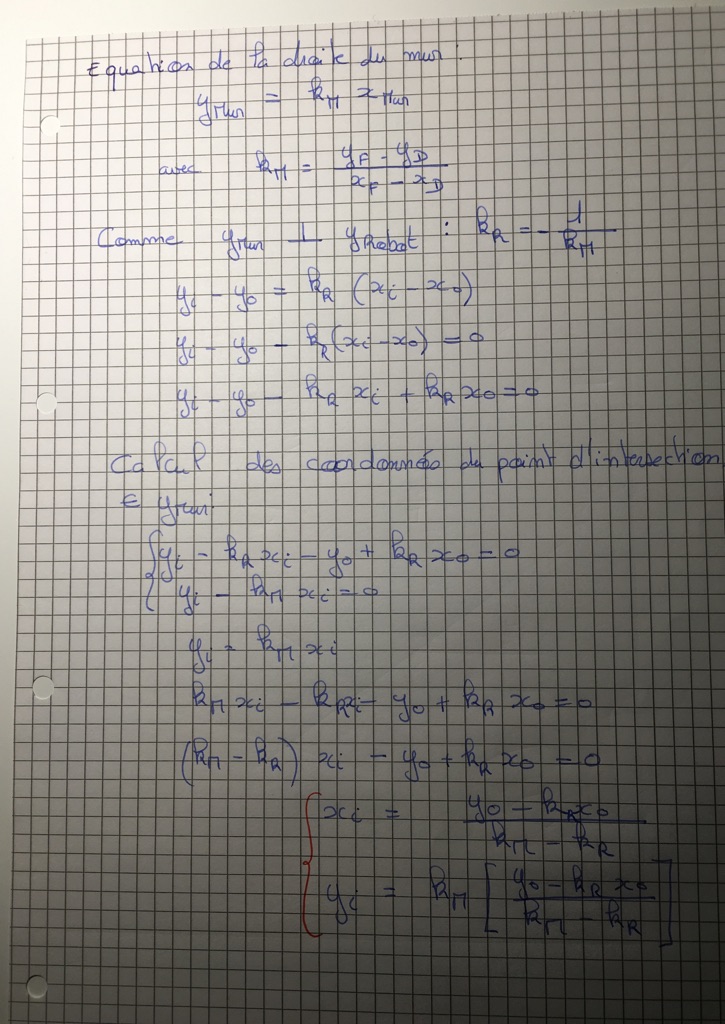 Equation de la droite du mur :
y_Mur = k_M x_Mur
avec k_M = (y_F - y_D) / (x_F - x_D)
Comme y_Mur ⊥ y_Robot : k_R = - 1 / k_M
y_i - y_0 = k_R (x_i - x_0)
y_i - y_0 - k_R (x_i - x_0) = 0
y_i - y_0 - k_R x_i + k_R x_0 = 0
Calcul des coordonnées du point d'intersection
∈ y_Mur
{ y_i - k_R x_i - y_0 + k_R x_0 = 0
y_i - k_M x_i = 0
y_i = k_M x_i
k_M x_i - k_R x_i - y_0 + k_R x_0 = 0
(k_M - k_R) x_i - y_0 + k_R x_0 = 0
{ x_i = (y_0 - k_R x_0) / (k_M - k_R)
y_i = k_M [ (y_0 - k_R x_0) / (k_M - k_R) ]